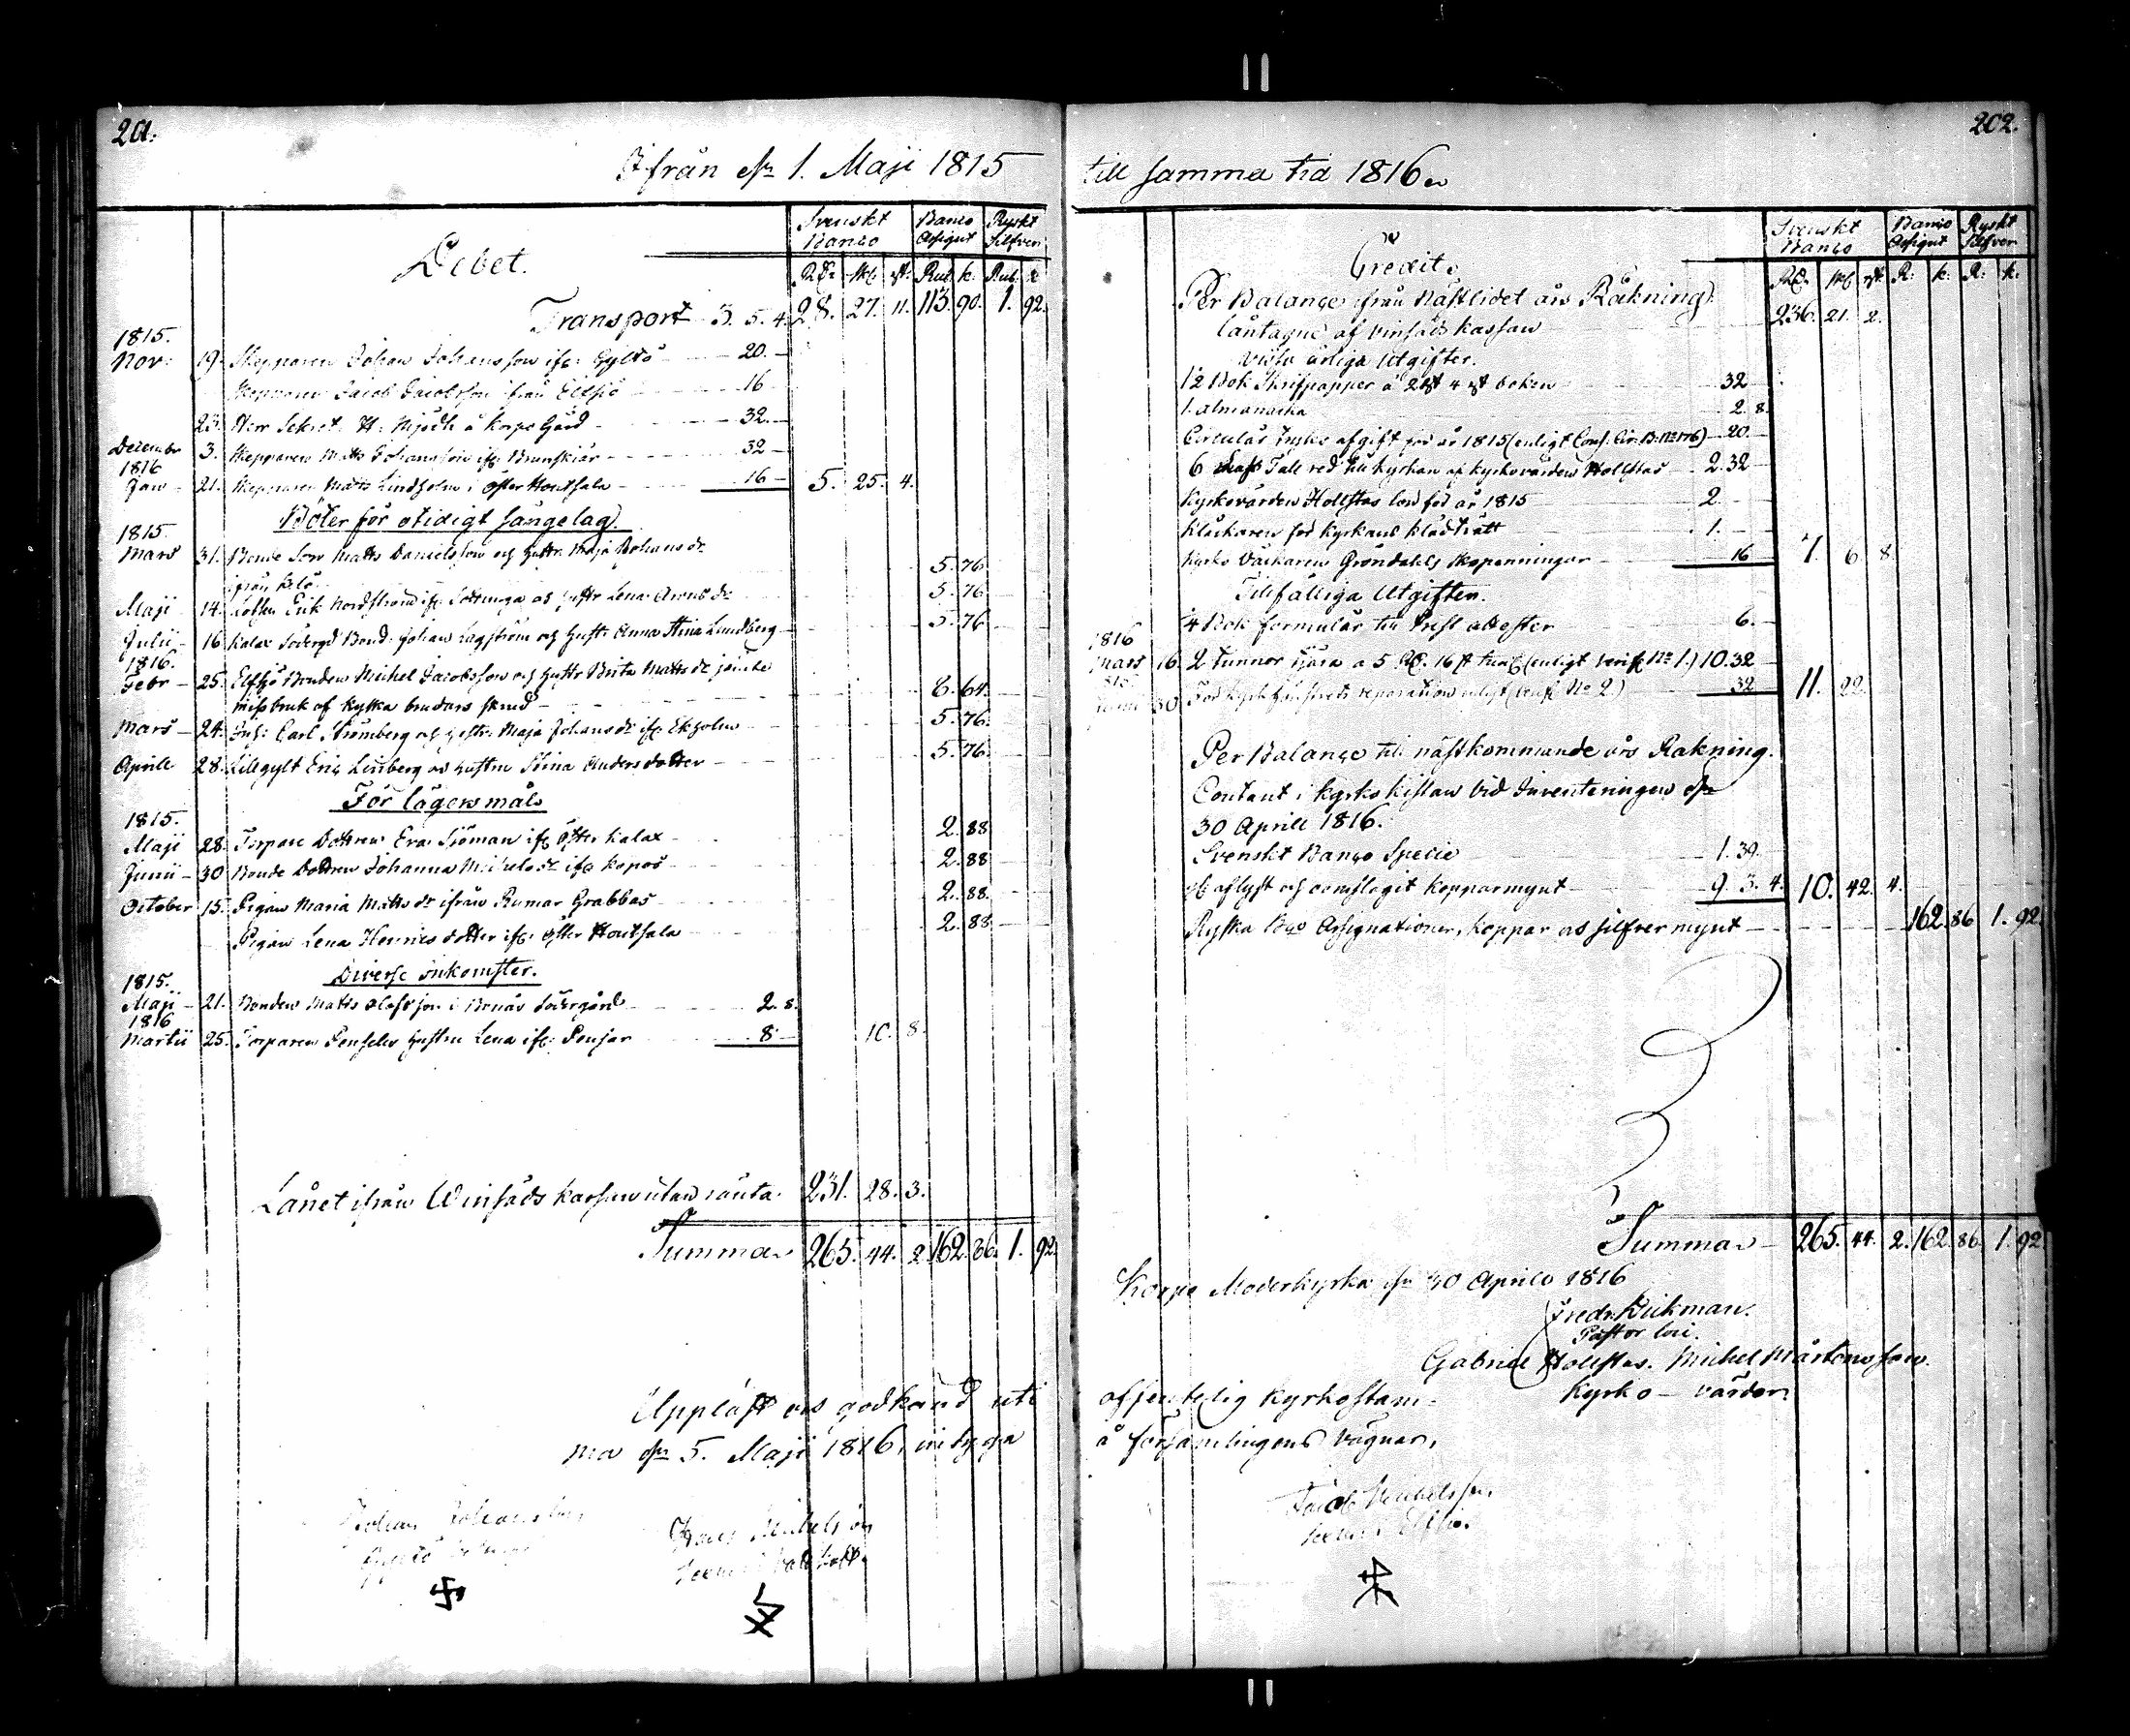 201.
Ifrån d. 1. Maji 1815
Svenskt Banco
Banco Assignt
Ryskt Silfver
Debet.
RD. sk. rst. Rub. k. Rub. k.
Transport 3. 5. 4. 28. 27. 11. 113. 90. 1. 92.
1815.
Nov: 19. Skepparen Johan Johansson ifr. Gyltö 20. —
Skepparen Jacob Jacobsson ifrån Elfsjö 16 —
23. Herr Sekret. H. Mjödh å Korpo Gård 32. —
December 3. Skepparen Matts Johansson ifr. Brunskiär 32 —
1816
Jan — 21. Skepparen Matts Lindholm i Öster Houtsala 16 — 5. 25. 4.
Böter för otidigt sängelag.
1815.
Mars 31. Bonde Son Matts Danielsson och hustr. Maja Johans dr
ifrån 5. 76
Maji 14. Erik Nordström ifr. och hustr Lena dr 5. 76
Julii — 16 Kalax Södergd Bond. Johan Lagström och hustr. Anna Stina Lundberg 5. 76
1816.
Febr — 25. Elfsjö Bonden Michel Jacobsson och hustr Brita Matts dr jemte
missbruk af kyrko brudars skrud 8. 64.
Mars — 24. Carl Strömberg och hustr. Maja Johans dr ifr. Ekholm 5. 76.
Aprill 28. Lillgylt Eric Linberg och hustru Stina Andersdotter 5. 76.
För lägersmål
1815.
Maji 28. Torpare Dottren Eva Sjöman ifr. Öster Kalax 2. 88
Junii — 30 Bonde Dottren Johanna Michels dr ifr. Kopos 2. 88
October 15. Pigan Maria Matts dr ifrån Rumar Grabbas 2. 88.
Pigan Lena Henrics dotter ifr. Öster Houtsala 2. 88.
Diverse inkomster.
1815.
Maji — 21. Bonden Matts Olofsson i Bonäs Södergård 2. 8.
1816
Martii 25. Torparen hustru Lena ifr. 8. — 10. 8.
Lånet ifrån Winsäds kassan utan ränta. 231. 28. 3.
Summa 265. 44. 2. 162. 86. 1. 92.
Uppläst och godkänd uti
ma d. 5. Maji 1816, intyga
Johan Johansson
Gyltö
Michelsson
202.
till samma tid 1816.
Svenskt Banco
Banco Assignt
Ryskt Silfver
Credit.
RD. sk. rst. R: k. R: k.
Per Balance ifrån Nästlidet års Räkning. 236. 21. 2.
låntagne af vinsäds kassan
Vissa årliga Utgifter.
12 Bok Skrifpapper à 2 sk 4 rst boken 32
1. almanacka 2. 8.
Circulär Trycks afgift för år 1815 (enligt Cons. Cir. B. No 176) 20
6 Tall ved till kyrkan af kyrkovärden Hollstas 2. 32 —
Kyrkovärden Hollstas lön för år 1815 2. —
Klåckaren för kyrkans klädtvätt 1. —
Kyrko Väckaren Gröndahls skopenningar 16 — 7. 6. 8.
Tillfälliga Utgifter.
4 Bok formulär till Prest attester 6. —
1816
Mars 16. 2 Tunnor Tjära a 5 RD. 16 sk tun. (enligt verif. No 1.) 10. 32 —
30 För reparation enligt (verif. No 2.) 32 11. 22.
Per Balance till nästkommande års Räkning.
Contant i kyrko kistan vid Inventeringen d.
30 Aprill 1816.
Svenskt Banco Specie 1. 39.
aflyst och omslagit kopparmynt 9. 3. 4. 10. 42. 4.
Ryska Bco Assignationer, koppar och silfver mynt 162. 86 1. 92.
Summa 265. 44. 2. 162. 86. 1. 92
Korpo Moderkyrka d. 30 Aprill 1816
Fredr. Dickman.
Pastor loci.
Gabriel Hollstas. Michel Mårtensson.
Kyrko — värdar
offentelig kyrkostäm-
å församlingens vägnar,
Jacob Michelsson